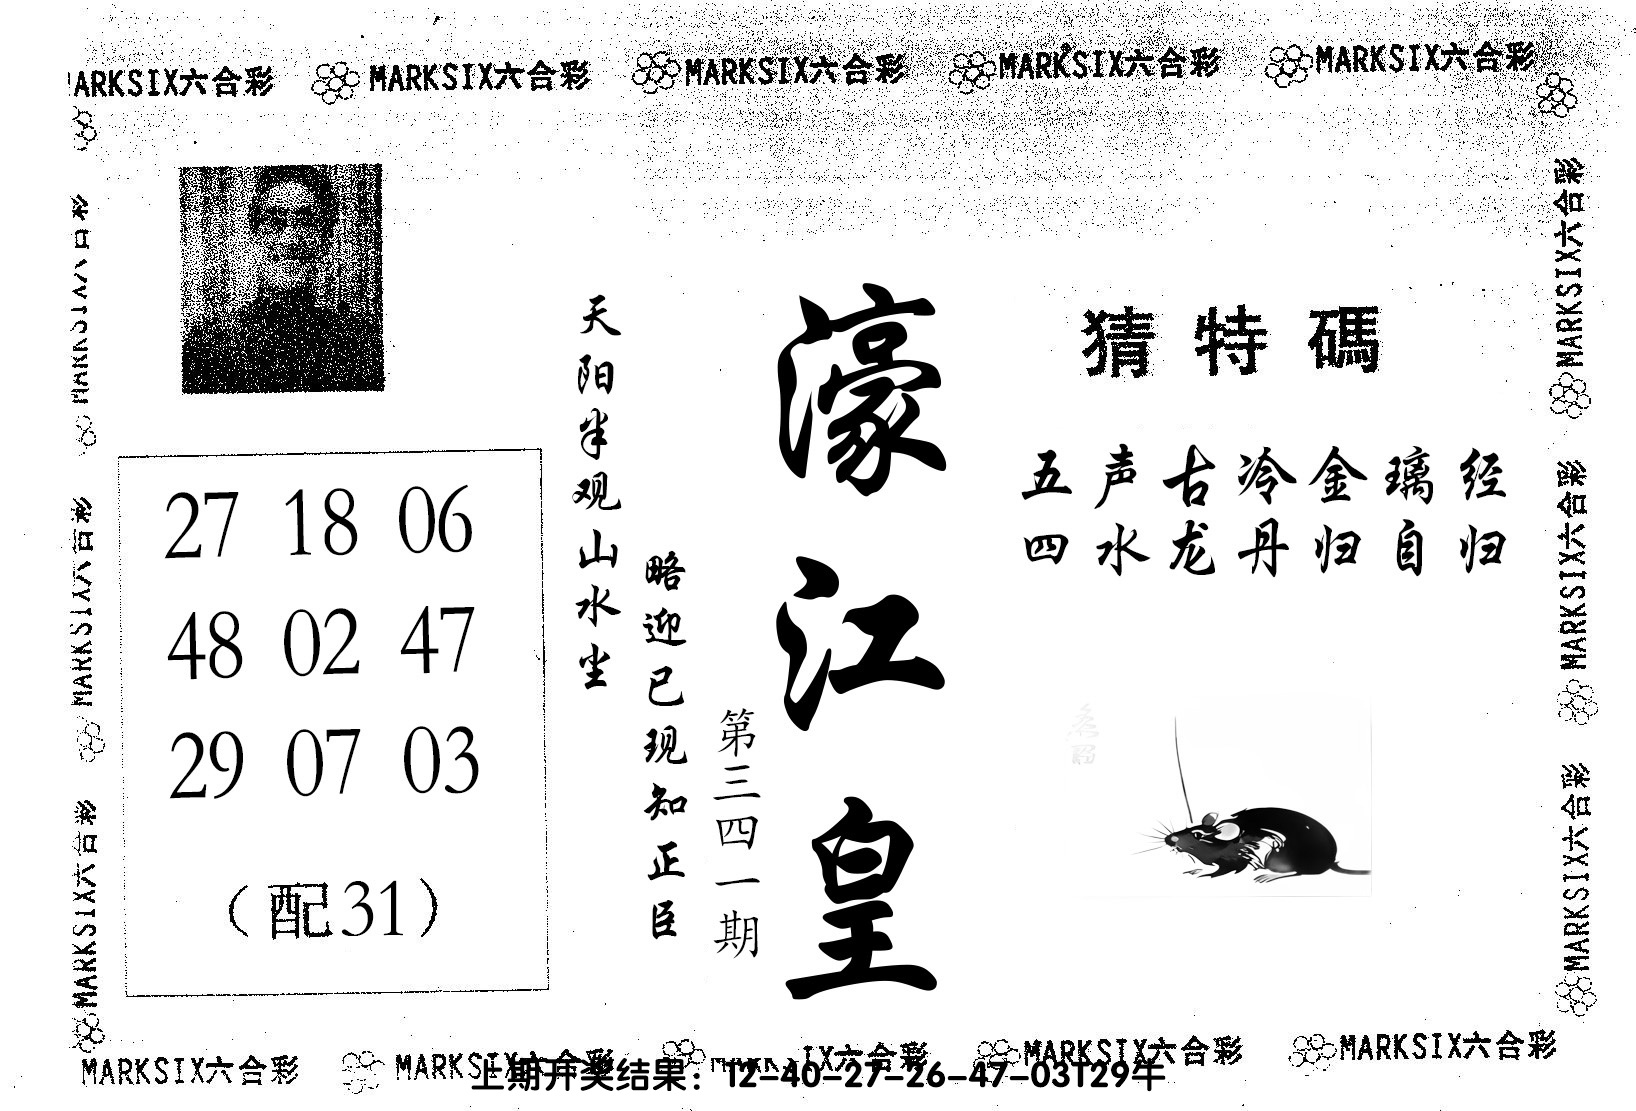 MARKSIX六合彩 MARKSIX六合彩 MARKSIX六合彩 MARKSIX六合彩 MARKSIX六合彩
MARKSIX六合彩
MARKSIX六合彩
MARKSIX六合彩
27 18 06
48 02 47
29 07 03
（配31）
天阳半观山水尘
略迎已现知正臣
第三四一期
濠江皇
猜特碼
五声古冷金璃经
四水龙丹归自归
MARKSIX六合彩
MARKSIX六合彩
MARKSIX六合彩
MARKSIX六合彩 MARKSIX六合彩 IX六合彩 MARKSIX六合彩 MARKSIX六合彩
上期开奖结果：12-40-27-26-47-03T29牛